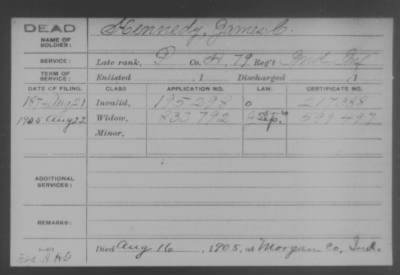 DEAD
NAME OF SOLDIER: Kennedy, James C.
SERVICE: Late rank, P Co. H, 79 Reg't Ind Inf
TERM OF SERVICE: Enlisted 1 Discharged 1
DATE OF FILING. CLASS APPLICATION NO. LAW. CERTIFICATE NO.
187 Aug 21 Invalid, 195.298 217.388
1905 Aug 22 Widow, 833.792 599.497
Minor,
ADDITIONAL SERVICES:
REMARKS:
Died Aug 16, 1905, at Morgan Co, Ind.